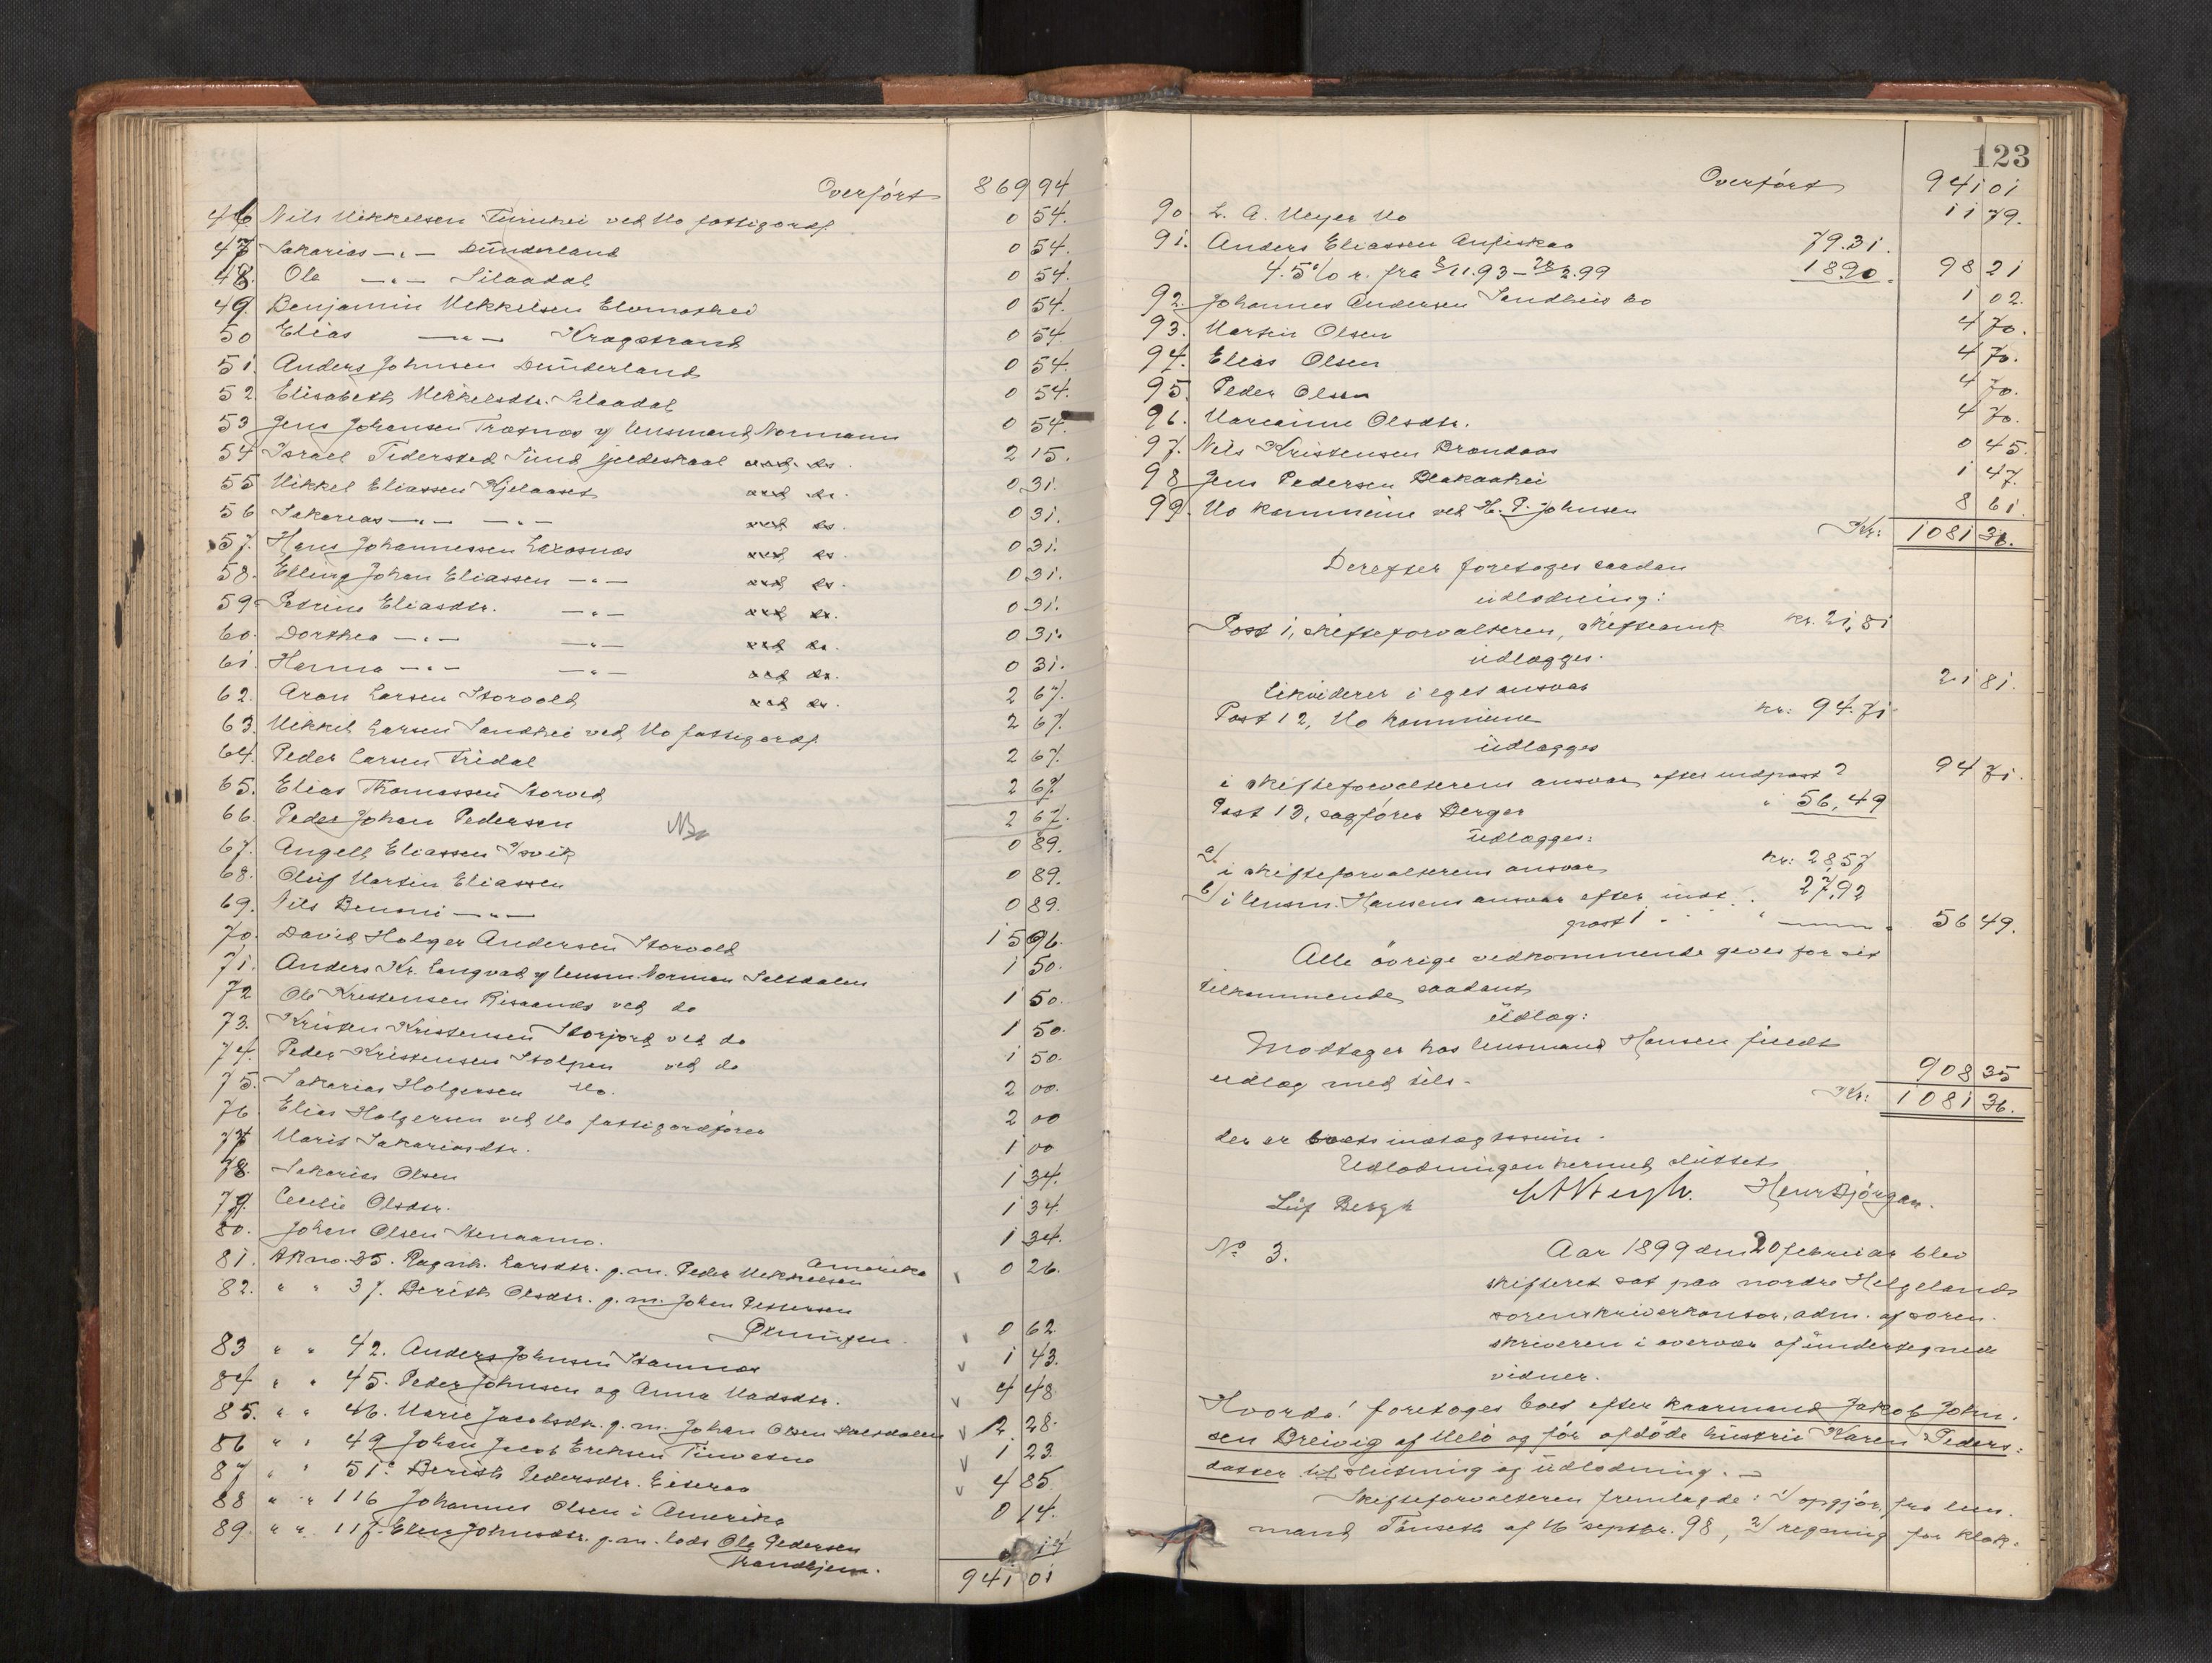 Overført 869 94
46 Nils Mikkelsen ved Mo fattigordf. 0 54.
47 Sakarias —"— Dunderland 0 54.
48. Ole —"— Silaadal 0 54.
49. Benjamin Mikkelsen 0 54.
50 Elias —"— Kragstrand 0 54
51. Anders Johnsen Dunderland 0 54.
52. Elisabeth Mikkelsdtr. Silaadal 0 54.
53 Jens Johansen Træsnos v/ lensmand Normann 0 54.
54 Israel Tidersted Sund Gjeldeskaal ved do. 2 15.
55 Mikkel Eliassen Kjelaaset ved do. 0 31.
56 Sakarias —"— —"— ved do. 0 31.
57. Hans Johannessen Laxosnos ved do. 0 31.
58. Elling Johan Eliassen —"— ved do. 0 31.
59. Petrine Eliasdtr. —"— ved do. 0 31.
60. Dorthea —"— —"— ved do. 0 31.
61. Hanna —"— —"— ved do. 0 31.
62. Aron Larsen Storvold ved do. 2 67.
63. Mikkel Larsen Sandhei ved Mo fattigordf. 2 67.
64. Peder Larsen Fridal 2 67.
65. Elias Thomassen Storved 2 67.
66. Peder Johan Pedersen 2 67.
67. Angell Eliassen Isvik 0 89.
68. Oluf Martin Eliassen 0 89.
69. Nils Benoni —"— 0 89.
70. David Holger Andersen Storvold 15 96.
71. Anders Kr. Langvad v/ lensm Norman Saltdalen 1 50.
72 Ole Kristensen Risaands ved do 1 50.
73. Kristen Kristensen Storjord ved do 1 50.
74. Peder Kristensen Stolpen ved do 1 50.
75. Sakarias Holgersen Mo. 2 00.
76. Elias Holgersen ved Mo fattigordfører 2 00
77 Marit Sakariasdtr. 1 00
78. Sakarias Olsen 1 34.
79. Cecilie Olsdtr. 1 34.
80. Johan Olsen Stenaamo. 1 34.
81. AR no. 35. Ragnh. Larsdtr. g. m. Peder Mikkelsen Amerika 0 26.
82. " " 37. Berith Olsdtr. g. m. Johan Pettersen
Ølmungen. 0 62
83 " " 42. Anders Johnsen Stamnæs 1 43.
84 " " 45. Peder Johnsen og Anna Madsdtr. 4 48
85. " " 46. Marie Jacobsdtr. g. m. Johan Olsen Saltdalen 2. 28.
86 " " 49 Johan Jacob Eriksen 1 23
87 " " 51. Berith Pedersdtr. Eiteraa 4 85
88 " " 116 Johannes Olsen i Amerika 0 14.
89. " " 117. Elen Johnsdtr. g. m. lods Ole Pedersen
Trondhjem. 14
941 01
123
Overført 941 01
90. L. A. Meyer Mo 11 79.
91. Anders Eliassen Anfiskaa 79.31.
4.5% r. fra 8/11.93 – 28/2.99 18.90. 98 21
92. Johannes Andersen Sandheis bo 1 02.
93. Martin Olsen 4 70.
94. Elias Olsen 4 70.
95. Peder Olsen 4 70.
96. Marianne Olsdtr. 4 70.
97. Nils Kristensen Brandaas 0 45.
98 Jens Pedersen Blakaahei 1 47.
99. Mo kommune ved H. P. Johnsen 8 61.
Kr: 1081 36.
Derefter foretoges saadan
udlodning:
Post 1, skifteforvalteren, skifteomk kr. 21,81
udlægges.
likviderer i eget ansvar 21 81.
Post 12, Mo kommune kr: 94.71
udlægges
i skifteforvalterens ansvar efter indpost 2 94 71.
Post 13, sagfører Berger " 56,49
udlægges:
a/ i skifteforvalterens ansvar kr: 28,57
b/ i lensm. Hansens ansvar efter indt. 27,92
post 1 — 56 49.
Alle øvrige vedkommende gives for sit
tilkommende saadant
Udlæg:
Modtager hos lensmand Hansen fuldt
udlæg med tils. 908 35
Kr: 1081 36.
der er boets indtægtssum.
Udlodningen hermed sluttet
Leif Bergh Henr Bjørgan.
No 3. Aar 1899 den 20 februar blev
skifteret sat paa nordre Helgelands
sorenskriverkontor, adm. af soren-
skriveren i overvær af undertegnede
vidner.
Hvorda! foretoges boet efter kaarmand Jakob John-
sen Breivig af Melø og før afdøde hustru Karen Peders-
datter til slutning og udlodning. —
Skifteforvalteren fremlagde: 1/ opgjør fra lens-
mand Tønseth af 16 septbr. 98, 2/ regning for klok-